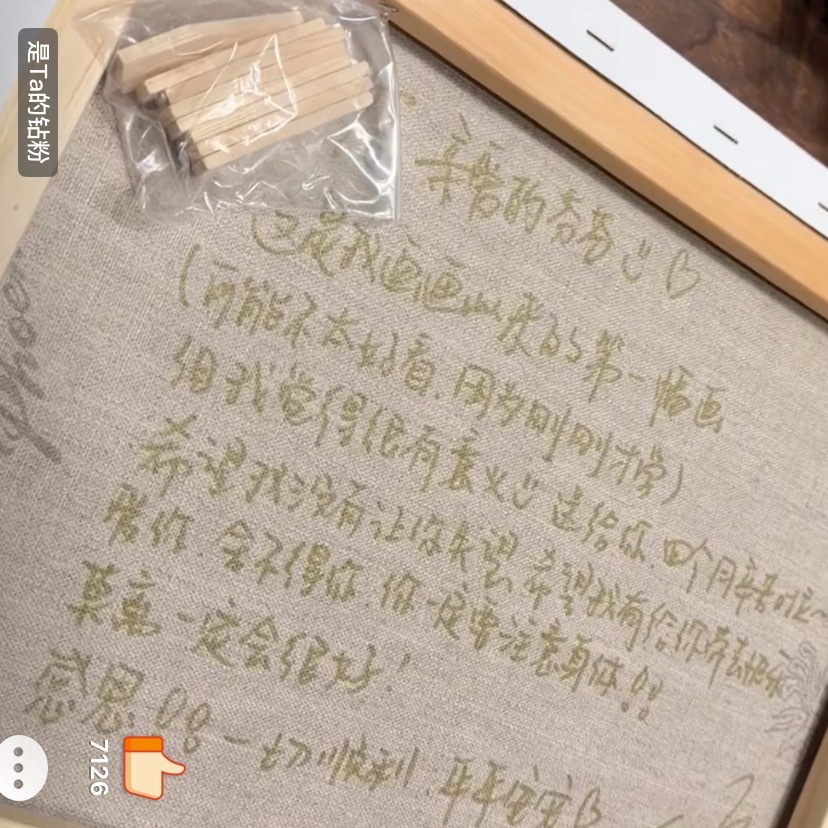 是Ta的钻粉
亲爱的
这是我画画以来的第一幅画
(可能不太好看.因为刚刚才学)
但我觉得很有意义 送给你.四个月辛苦啦~
希望我没有让你失望.希望我有给你带去快乐
爱你.舍不得你.你一定要注意身体!!
莫离一定会很好!
感恩 一切顺利.平平安安
7126